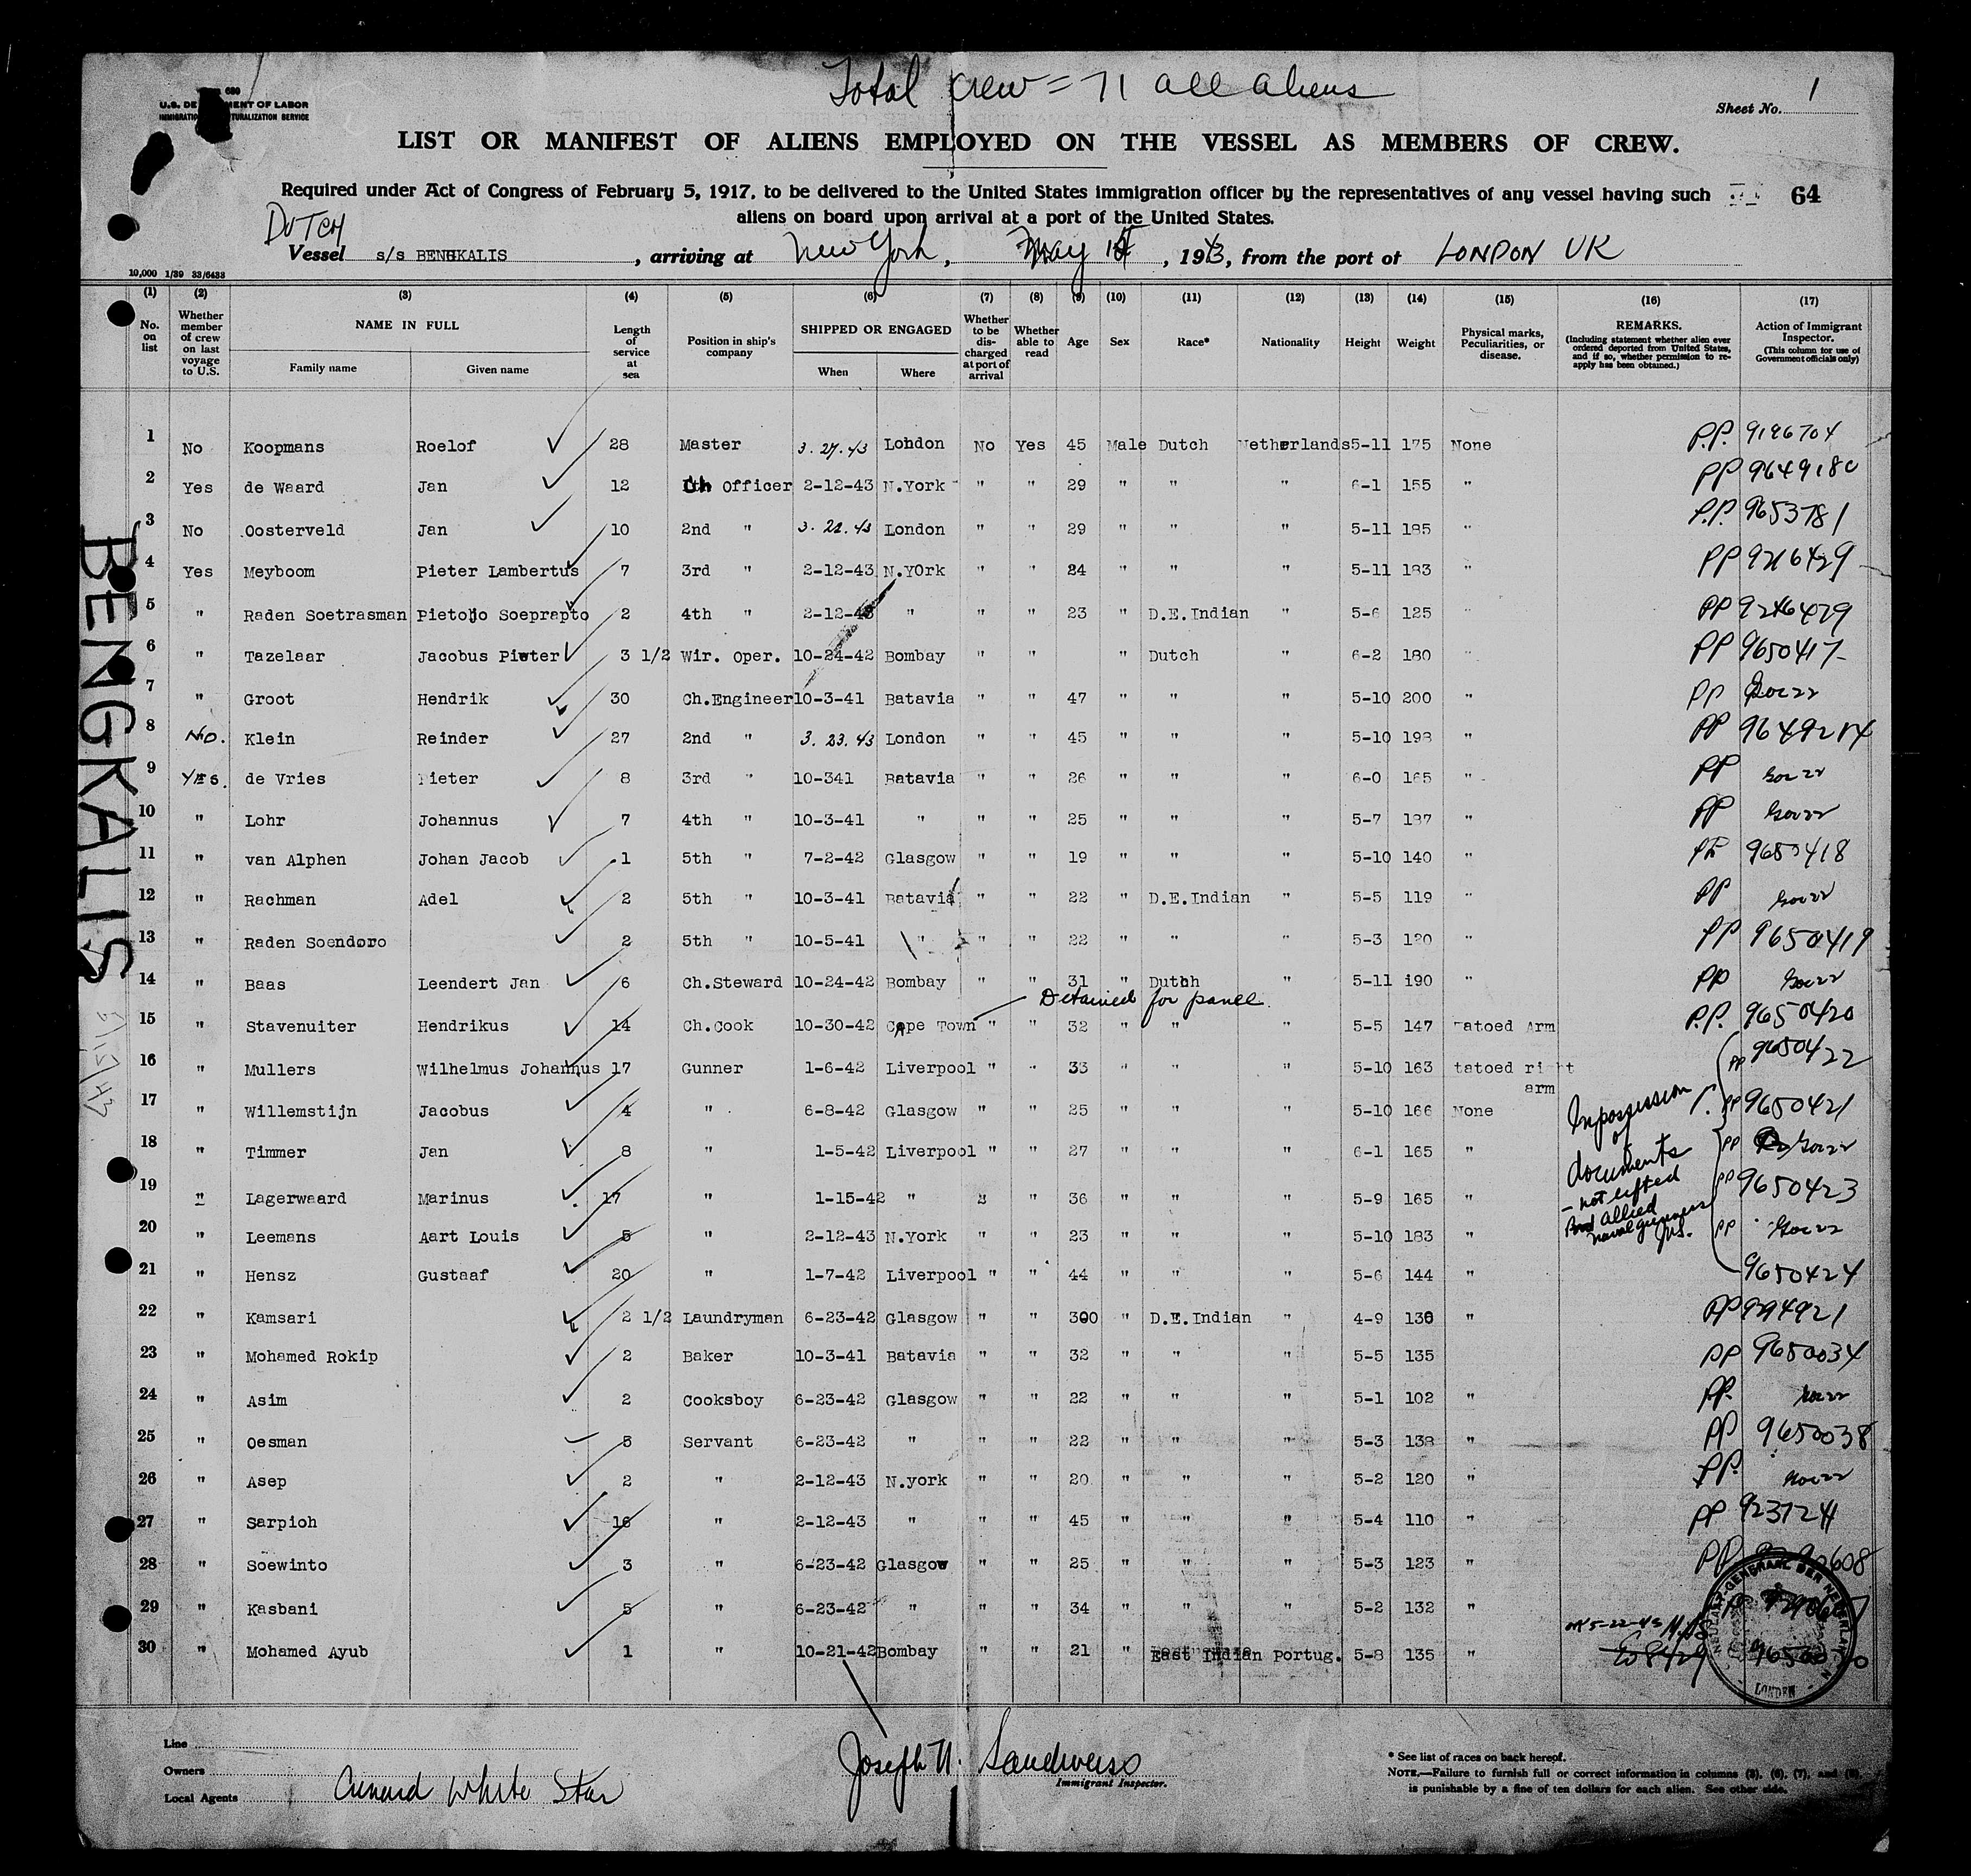 Total crew = 71 all aliens
Sheet No. 1
U.S. DE MENT OF LABOR
IMMIGRATIO TURALIZATION SERVICE
LIST OR MANIFEST OF ALIENS EMPLOYED ON THE VESSEL AS MEMBERS OF CREW.
Required under Act of Congress of February 5, 1917, to be delivered to the United States immigration officer by the representatives of any vessel having such 64
aliens on board upon arrival at a port of the United States.
DUTCH
Vessel s/s BENGKALIS, arriving at New York, May, 1943, from the port of LONDON UK
10,000 1/39 33/6433
(1) (2) (3) (4) (5) (6) (7) (8) (9) (10) (11) (12) (13) (14) (15) (16) (17)
No. on list Whether member of crew on last voyage to U.S. NAME IN FULL Family name Given name Length of service at sea Position in ship's company SHIPPED OR ENGAGED When Where Whether to be discharged at port of arrival Whether able to read Age Sex Race* Nationality Height Weight Physical marks, Peculiarities, or disease. REMARKS. (Including statement whether alien ever ordered deported from United States, and if so, whether permission to re-apply has been obtained.) Action of Immigrant Inspector. (This column for use of Government officials only)
1 No Koopmans Roelof 28 Master 3.27.43 London No Yes 45 Male Dutch Netherlands 5-11 175 None P.P. 9196704
2 Yes de Waard Jan 12 Officer 2-12-43 N.York " " 29 " " " 6-1 155 " PP 9649180
3 No Oosterveld Jan 10 2nd " 3.22.43 London " " 29 " " " 5-11 185 " P.P. 9653781
4 Yes Meyboom Pieter Lambertus 7 3rd " 2-12-43 N.YOrk " " 24 " " " 5-11 183 " PP 9216429
5 " Raden Soetrasman Pietojo Soeprapto 2 4th " 2-12-43 " " " 23 " D.E.Indian " 5-6 125 " PP 9246479
6 " Tazelaar Jacobus Pieter 3 1/2 Wir. Oper. 10-24-42 Bombay " " " Dutch " 6-2 180 " PP 9650417
7 " Groot Hendrik 30 Ch.Engineer 10-3-41 Batavia " " 47 " " " 5-10 200 " PP
8 No. Klein Reinder 27 2nd " 3.23.43 London " " 45 " " " 5-10 198 " PP 9649214
9 YES. de Vries Pieter 8 3rd " 10-341 Batavia " " 26 " " " 6-0 165 " PP
10 " Lohr Johannus 7 4th " 10-3-41 " " " 25 " " " 5-7 137 " PP
11 " van Alphen Johan Jacob 1 5th " 7-2-42 Glasgow " " 19 " " " 5-10 140 " PP 9650418
12 " Rachman Adel 2 5th " 10-3-41 Batavia " " 22 " D.E.Indian " 5-5 119 " PP
13 " Raden Soendoro 2 5th " 10-5-41 " " " 22 " " " 5-3 120 " PP 9650419
14 " Baas Leendert Jan 6 Ch.Steward 10-24-42 Bombay " " 31 " Dutch " 5-11 190 " PP
Detained for panel.
15 " Stavenuiter Hendrikus 14 Ch.Cook 10-30-42 Cape Town " " 32 " " " 5-5 147 Tatoed Arm P.P. 9650420
16 " Mullers Wilhelmus Johannus 17 Gunner 1-6-42 Liverpool " " 33 " " " 5-10 163 tatoed right arm PP 9650422
17 " Willemstijn Jacobus 4 " 6-8-42 Glasgow " " 25 " " " 5-10 166 None PP 9650421
18 " Timmer Jan 8 " 1-5-42 Liverpool " " 27 " " " 6-1 165 " PP
19 " Lagerwaard Marinus 17 " 1-15-42 " " " 36 " " " 5-9 165 " PP 9650423
20 " Leemans Aart Louis 5 " 2-12-43 N.York " " 23 " " " 5-10 183 " PP
21 " Hensz Gustaaf 20 " 1-7-42 Liverpool " " 44 " " " 5-6 144 " 9650424
In possession
of
documents
- not lifted
Allied
naval gunners
22 " Kamsari 2 1/2 Laundryman 6-23-42 Glasgow " " 30 " D.E.Indian " 4-9 130 " PP 9294921
23 " Mohamed Rokip 2 Baker 10-3-41 Batavia " " 32 " " " 5-5 135 " PP 9650034
24 " Asim 2 Cooksboy 6-23-42 Glasgow " " 22 " " " 5-1 102 " PP.
25 " Oesman 5 Servant 6-23-42 " " " 22 " " " 5-3 138 " PP 9650038
26 " Asep 2 " 2-12-43 N.york " " 20 " " " 5-2 120 " PP.
27 " Sarpioh 16 " 2-12-43 " " " 45 " " " 5-4 110 " PP 9237241
28 " Soewinto 3 " 6-23-42 Glasgow " " 25 " " " 5-3 123 " PP
29 " Kasbani 5 " 6-23-42 " " " 34 " " " 5-2 132 "
30 " Mohamed Ayub 1 " 10-21-42 Bombay " " 21 " East Indian Portug. 5-8 135 "
BENGKALIS
5/15/43
LONDEN
Line
Owners
Local Agents Cunard White Star
Joseph N. Sandweiss
Immigrant Inspector.
* See list of races on back hereof.
NOTE.—Failure to furnish full or correct information in columns (3), (6), (7), and (8)
is punishable by a fine of ten dollars for each alien. See other side.